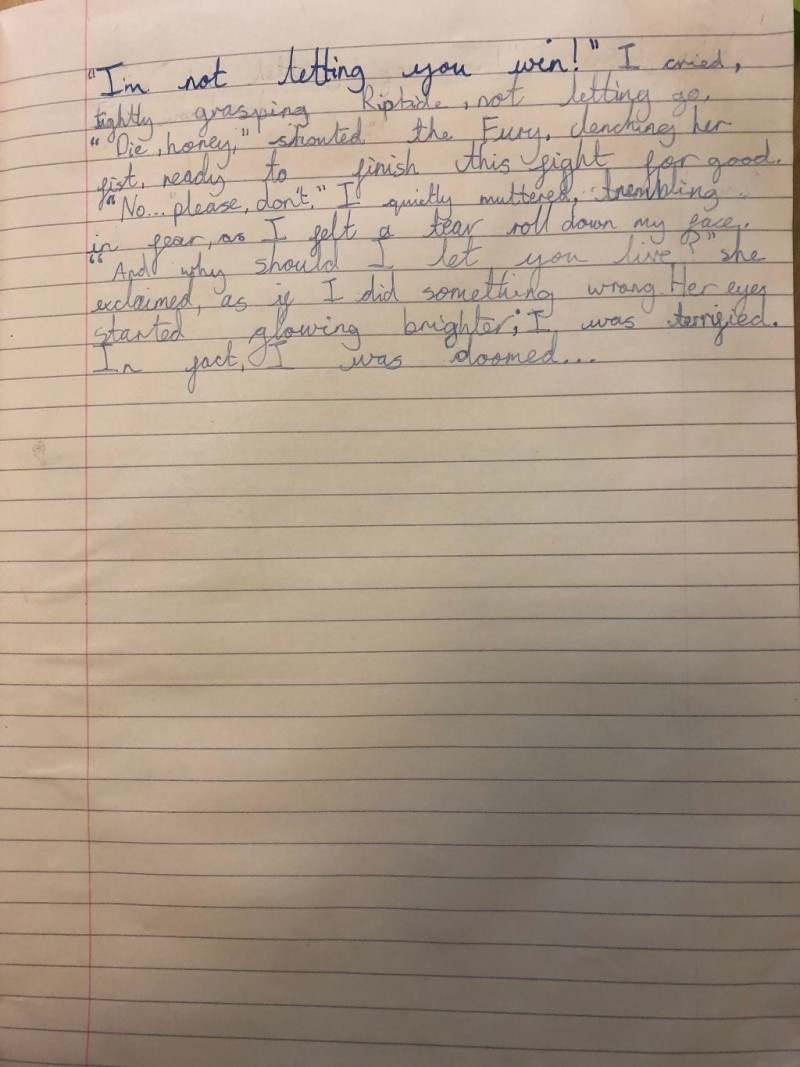 "I'm not letting you win!" I cried,
tightly grasping Riptide, not letting go.
"Die, honey," shouted the Fury, clenching her
fist, ready to finish this fight for good.
"No... please, don't," I quietly muttered, trembling
in fear, as I felt a tear roll down my face.
"And why should I let you live?" she
exclaimed, as if I did something wrong. Her eyes
started glowing brighter; I was terrified.
In fact, I was doomed...